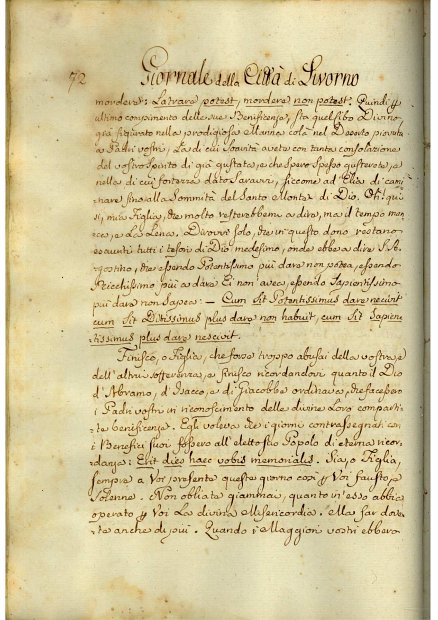 72 Giornale della Città di Livorno
morderet: Latrare potest, mordere non potest. Quindi ꝑ
ultimo compimento delle sue Beneficenze, sta quel Cibo Divino
già figurato nella prodigiosa Manna colà nel Deserto piovuta
a Padri vostri, La di cui soavità avete con tanta consolazione
del vostro Spirito di già gustata, e che spero spesso gusterete, e
nella di cui fortezza dato Saravvi, siccome ad Elia di cam
inare sino alla Sommità del Santo Monte di Dio. Oh! quì
sì, mia Figlia, che molto resterebbemi a dire, ma il tempo man
ca, e La Lena. Dirovvi solo, che in questo dono restano
esauriti tutti i tesori di Dio medesimo, onde ebbe a dire S. A
gostino, che essendo Potentissimo più dare non potea, essendo
Ricchissimo più a dare Ei non avea, essendo Sapientissimo
più dare non sapea: — Cum sit Potentissimus dare nescivit
cum sit Ditissimus plus dare non habuit, cum sit Sapien
tissimus plus dare nescivit.
Finisco, o Figlia, che forse troppo abusai della vostra, e
dell'altrui sofferenza, e finisco ricordandovi quanto il Dio
d'Abramo, d'Isacco, e di Giacobbe ordinava, che facessero
i Padri vostri in riconoscimento delle divine Loro comparti
te beneficenze. Egli voleva che i giorni contrassegnati con
i Benefici suoi fossero all'eletto suo Popolo di eterna ricor
danza: Erit dies haec vobis memorialis. Sia, o Figlia,
sempre a Voi presente questo giorno così ꝑ Voi fausto, e
solenne. Non obliate giammai, quanto in esso abbia
operato ꝑ Voi La divina Misericordia. Ma far dove
te anche di più. Quando i Maggiori vostri ebbero